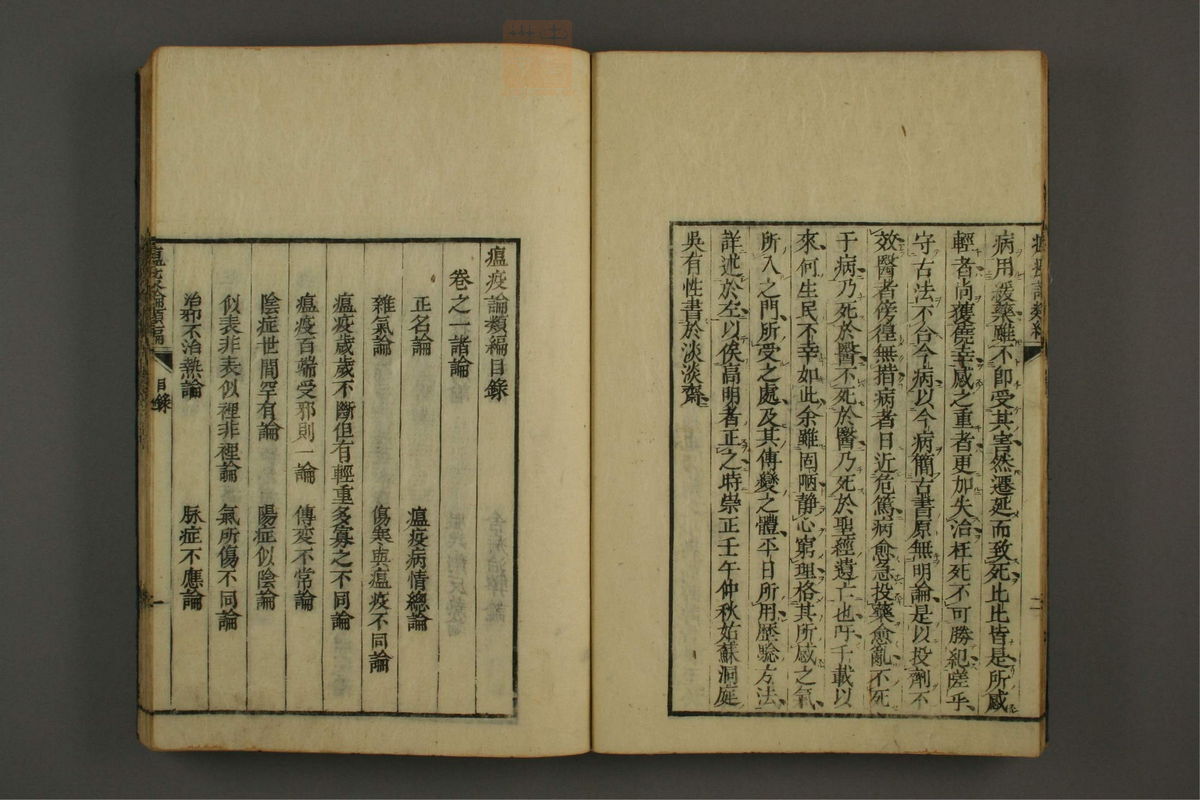 病用緩藥雖不即受其害然遷延而致死比比皆是所感
輕者尚獲僥幸感之重者更加失治枉死不可勝紀嗟乎
守古法不合今病以今病簡古書原無明論是以投劑不
效醫者傍徨無措病者日近危篤病愈急投藥愈亂不死
于病乃死於醫不死於醫乃死於聖經遺亡也吁千載以
來何生民不幸如此余雖固陋静心窮理格其所感之氣
所入之門所受之處及其傳變之體平日所用歷驗方法
詳述於左以俟高明者正之時崇正壬午仲秋姑蘇洞庭
吳有性書於淡淡齋
瘟疫論類編目錄
卷之一諸論
正名論 瘟疫病情總論
雜氣論 傷寒與瘟疫不同論
瘟疫歲歲不斷但有輕重多寡之不同論
瘟疫百端受邪則一論 傳变不常論
陰症世間罕有論 陽症似陰論
似表非表似裡非裡論 氣所傷不同論
治邪不治熱論 脉症不應論
瘟疫論類編 目錄 一